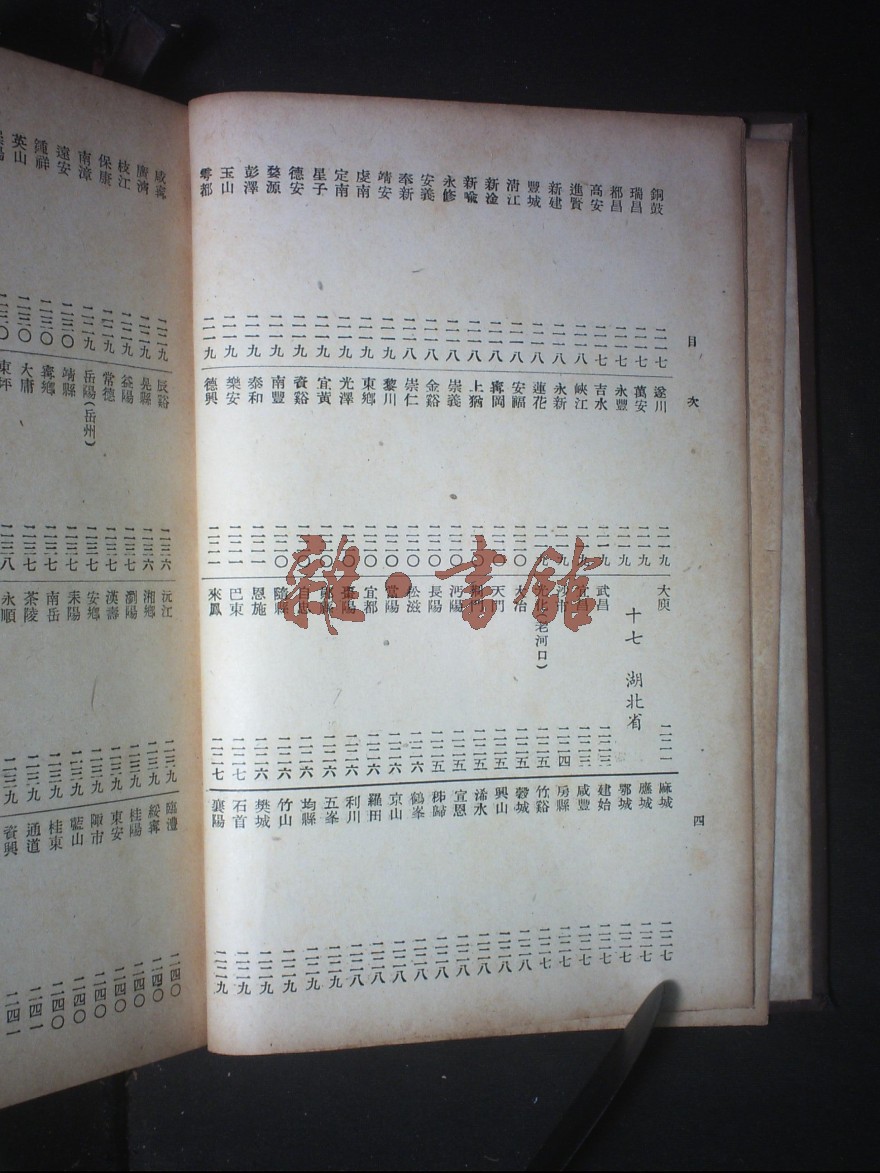 目次 四
銅鼓 二一七
瑞昌 二一七
都昌 二一七
高安 二一七
進賢 二一八
新建 二一八
豐城 二一八
清江 二一八
新淦 二一八
新喻 二一八
永修 二一八
安義 二一八
奉新 二一八
靖安 二一九
虔南 二一九
定南 二一九
星子 二一九
德安 二一九
婺源 二一九
彭澤 二一九
玉山 二一九
雩都 二一九
遂川 二一九
萬安 二一九
永豐 二一九
吉水 二一九
峽江 二一九
永新 二一九
蓮花 二一九
安福 二二〇
寧岡 二二〇
上猶 二二〇
崇義 二二〇
金谿 二二〇
崇仁 二二〇
黎川 二二〇
東鄉 二二〇
光澤 二二〇
宜黃 二二〇
資谿 二二〇
南豐 二二〇
泰和 二二一
樂安 二二一
德興 二二一
大庾 二二一
十七 湖北省
武昌 二二三
宜昌 二二三
沙市 二二四
光化(老河口) 二二五
大冶 二二五
天門 二二五
荊門 二二五
沔陽 二二五
長陽 二二五
松滋 二二六
當陽 二二六
宜都 二二六
棗陽 二二六
二二六
自忠 二二六
隨縣 二二六
恩施 二二六
巴東 二二七
來鳳 二二七
麻城 二二七
應城 二二七
鄂城 二二七
建始 二二七
咸豐 二二七
房縣 二二七
竹谿 二二七
穀城 二二八
興山 二二八
浠水 二二八
宣恩 二二八
秭歸 二二八
鶴峯 二二八
京山 二二八
羅田 二二八
利川 二二八
五峯 二二九
均縣 二二九
竹山 二二九
樊城 二二九
石首 二二九
襄陽 二二九
咸寧 二二九
廣濟 二二九
枝江 二二九
保康 二二九
南漳 二二九
遠安 二三〇
鍾祥 二三〇
英山 二三〇
辰谿 二三六
晃縣 二三六
益陽 二三七
常德 二三七
岳陽(岳州) 二三七
靖縣 二三七
寧鄉 二三七
大庸 二三七
東坪 二三八
沅江 二三九
湘鄉 二三九
瀏陽 二三九
漢壽 二三九
安鄉 二三九
耒陽 二三九
南岳 二三九
茶陵 二三九
永順 二三九
臨澧 二四〇
綏寧 二四〇
桂陽 二四〇
東安 二四〇
陬市 二四〇
藍山 二四〇
桂東 二四〇
通道 二四一
資興 二四一
雜·書館